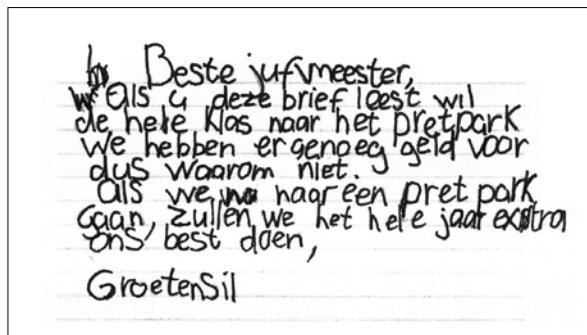 Beste juf/meester,
als u deze brief leest wil
de hele klas naar het pretpark
we hebben er genoeg geld voor
dus waarom niet.
als we naar een pret park
Gaan, zullen we het hele jaar exstra
ons best doen,
Groeten Sil